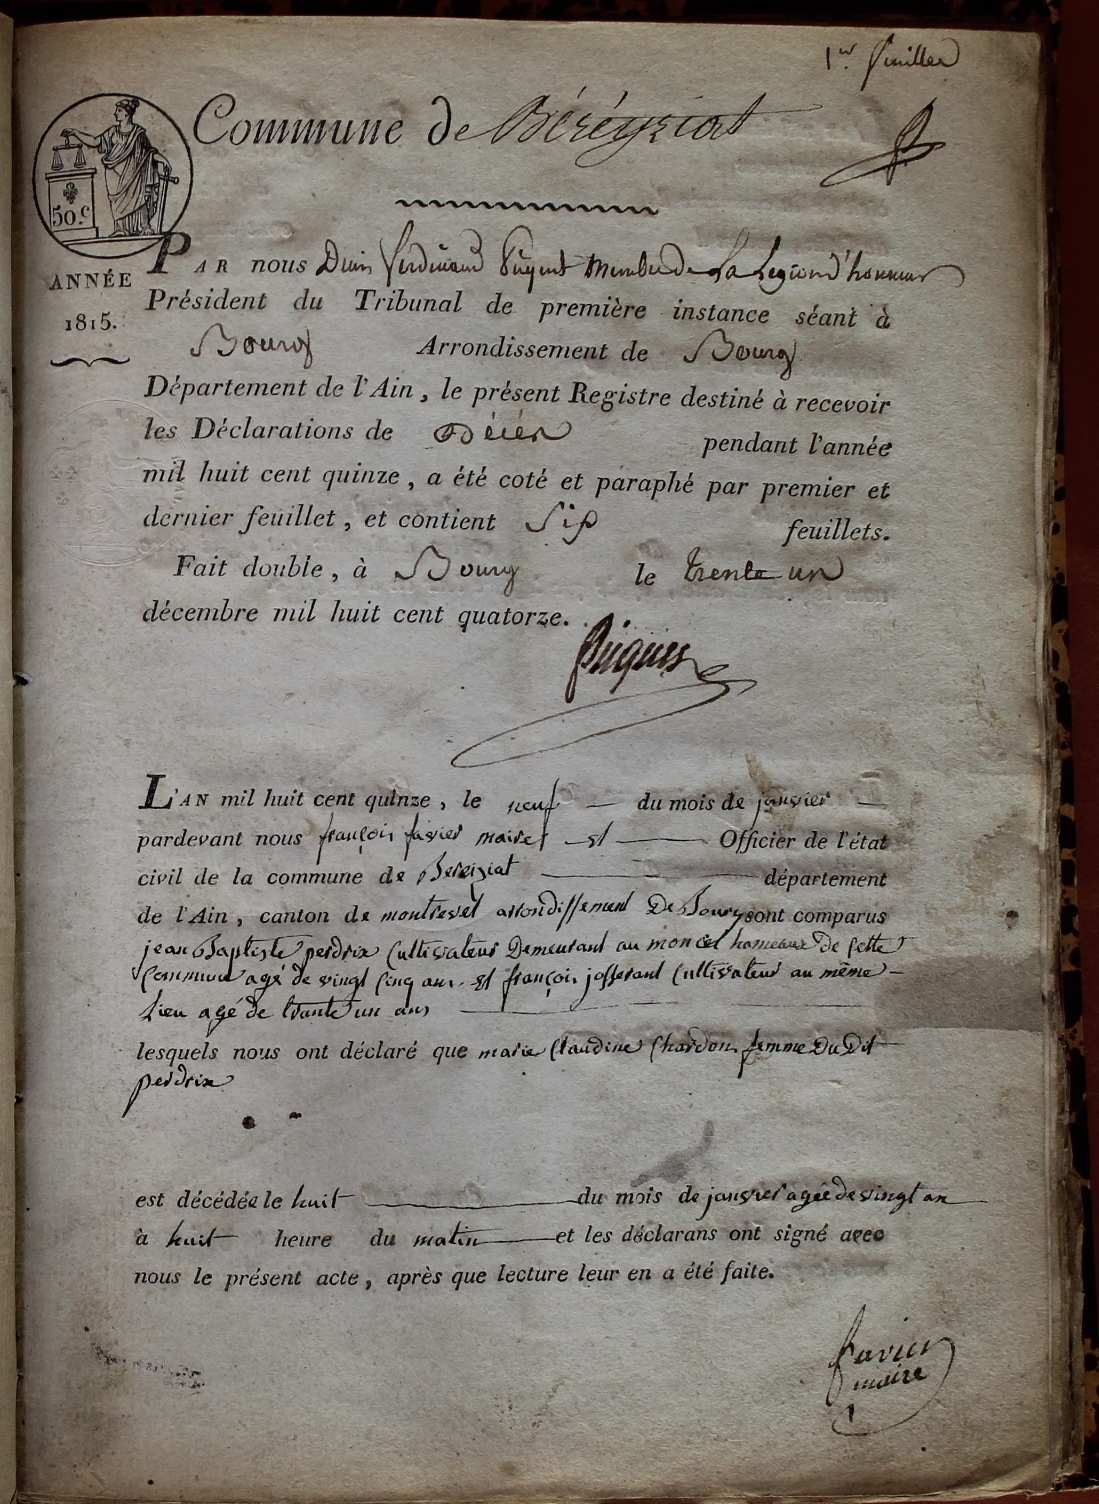 1er feuillet
Commune de Béréyziat
50.c
ANNÉE
1815.
PAR nous Denis Ferdinand Puguet Membre de La Legion d'honneur
Président du Tribunal de première instance séant à
Bourg Arrondissement de Bourg
Département de l'Ain, le présent Registre destiné à recevoir
les Déclarations de Décès pendant l'année
mil huit cent quinze, a été coté et paraphé par premier et
dernier feuillet, et contient Six feuillets.
Fait double, à Bourg le trente un
décembre mil huit cent quatorze.
L'AN mil huit cent quinze, le neuf du mois de janvier
pardevant nous françois favier maire et Officier de l'état
civil de la commune de Bereiziat département
de l'Ain, canton de montrevel arrondissement De Bourg sont comparus
jean Baptiste perdrix Cultivateur Demeurant au moncel hameaux de cette
Commune agé de vingt cinq ans et françois josserant Cultivateur au même
Lieu agé de trante un ans
lesquels nous ont déclaré que marie Claudine Chardon femme Du Dit
perdrix
est décédée le huit du mois de janvier agée de vingt an
à huit heure du matin et les déclarans ont signé avec
nous le présent acte, après que lecture leur en a été faite.
favier
maire